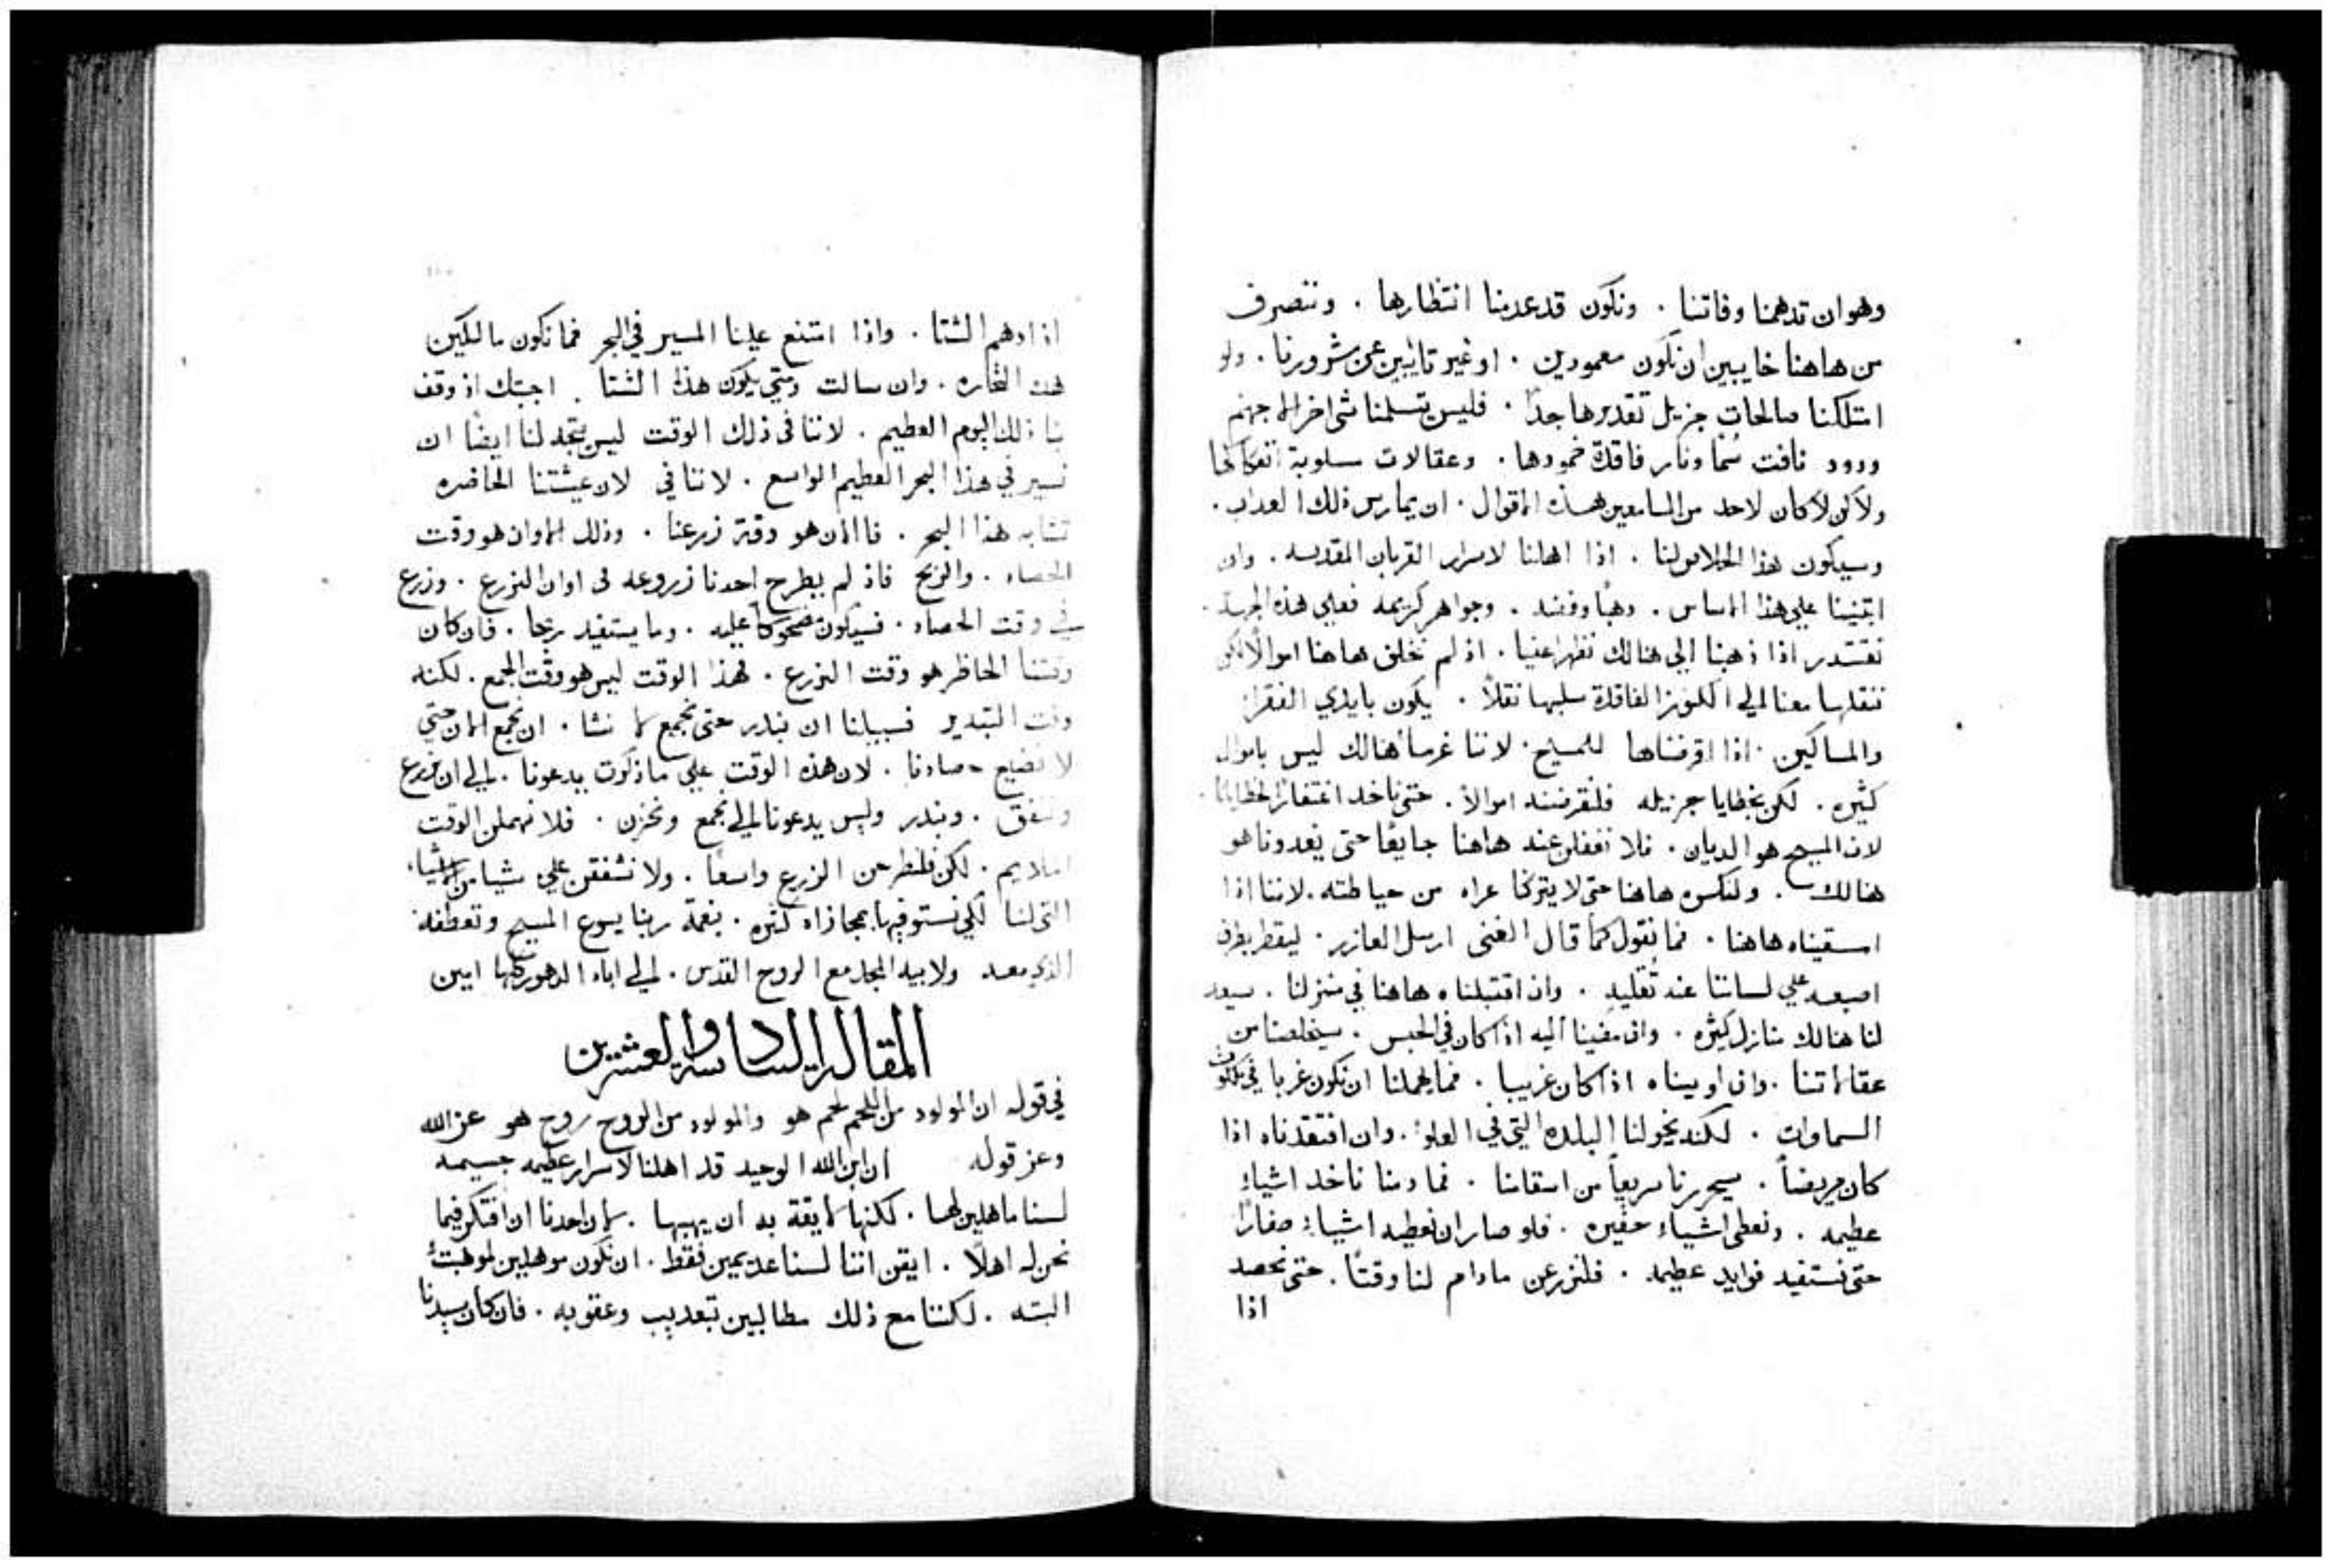 وهو ان تدهمنا وفاتنا . ونكون قد عدمنا انتظارها . وننصرف
من هاهنا خايبين ان نكون معمودين . او غير تايبين عن شرورنا . ولو
امتلكنا صالحات جزيل تقديرها جداً . فليس يتسلمنا شي اخر الا جهنم
ودود نافت سُما ونار فاقدة خمودها . وعقالات مسلوبة انفكاكها
ولاكن لا كان لاحد من السامعين هذه الاقوال . ان يمارس ذلك العداب .
وسيكون هذا الخلاص لنا . اذا اهلنا لاسرار القربان المقدسه . وان
ابتنينا علي هذا الاساس . دهباً وفضه . وجواهر كريمه فعلي هذه الجهة
نقتدر اذا ذهبنا الي هنالك نظهر اغنيا . اذ لم نخلف هاهنا اموالاً لكن
ننقلها معنا الي الكنوز الفاقدة سلبها نقلاً . يكون بايدي الفقرا
والمساكين . اذا اقرضناها للمسيح . لاننا غرماً هنالك ليس باموال
كثيره . لكن بخطايا جزيله فلنقرضنه اموالاً . حتى ناخد اغتفاراً لخطايانا .
لان المسيح هو الديان . فلا نغفلن عنه هاهنا جايعاً حتى يغدونا هو
هنالك . ولنكسوه هاهنا حتى لا يتركنا عراه من حياطته . لاننا اذا
اسقيناه هاهنا . فما نقول كما قال الغنى ارسل العازر . ليقطر بطرف
اصبعه علي لساننا عند تقليه . وان اقتبلناه هاهنا في منزلنا . سيعد
لنا هنالك منازل كثيره . وان مضينا اليه اذا كان في الحبس . سيخلصنا من
عقالاتنا . وان اويناه اذا كان غريبا . فما يهملنا ان نكون غربا في ملكوت
السماوات . لكنه يخولنا البلده التي في العلو . وان افتقدناه اذا
كان مريضاً . سيحررنا سريعاً من اسقامنا . فما دمنا ناخد اشياء
عظيمه . ونعطى اشياء حقيره . فلو صار ان نعطيه اشياء صغاراً
حتى نستفيد فوايد عظيمه . فلنزرعن مادام لنا وقتاً . حتى نحصد
اذا
اذا دهم الشتا . واذا امتنع علينا المسير في البحر فما نكون مالكين
هذه التجاره . وان سالت ومتي يكون هذا الشتا . اجبتك اذ وقف
بنا ذلك اليوم العظيم . لاننا في ذلك الوقت ليس يتجه لنا ايضاً ان
نسير في هذا البحر العظيم الواسع . لاننا في لان عيشتنا الحاضره
تشابه هذا البحر . فالان هو وقت زرعنا . وذلك الاوان هو وقت
الحصاد . والربح فاذ لم يطرح احدنا زروعه في اوان الزرع . وزرع
في وقت الحصاد . فسيكون مضحوكاً عليه . وما يستفيد ربحا . فان كان
وقتنا الحاظر هو وقت الزرع . فهذا الوقت ليس هو وقت الجمع . لكنه
وقت التبدير فسبيلنا ان نبدر حتى نجمع لا نشا . ان نجمع الان حتي
لا نضيع حصادنا . لان هذه الوقت علي ما ذكرت يدعونا . الي ان نزرع
وننفق . ونبدر وليس يدعونا الي ان نجمع ونخزن . فلا نهملن الوقت
الملايم . لكن فلنطرحن الزرع واسعاً . ولا نشفقن علي شيا من الاشيا
التي لنا لكي نستوفيها بمجازاه كثيره . بنعمة ربنا يسوع المسيح وتعطفه
الذي معه ولابيه المجد مع الروح القدس . الي اباد الدهور كلها امين
المقالة السادسة والعشرين
في قوله ان المولود من اللحم لحم هو والمولود من الروح روح هو عز الله
وعز قوله ان ابن الله الوحيد قد اهلنا لاسرار عظيمه جسيمه
لسنا ماهلين لها . لكنها لايقة به ان يهبها . لان احدنا ان افتكر فيما
نحن له اهلاً . ايقن اننا لسنا عديمين فقط . ان نكون موهلين لموهبته
البته . لكننا مع ذلك مطالبين بتعديب وعقوبه . فان كان سيدنا